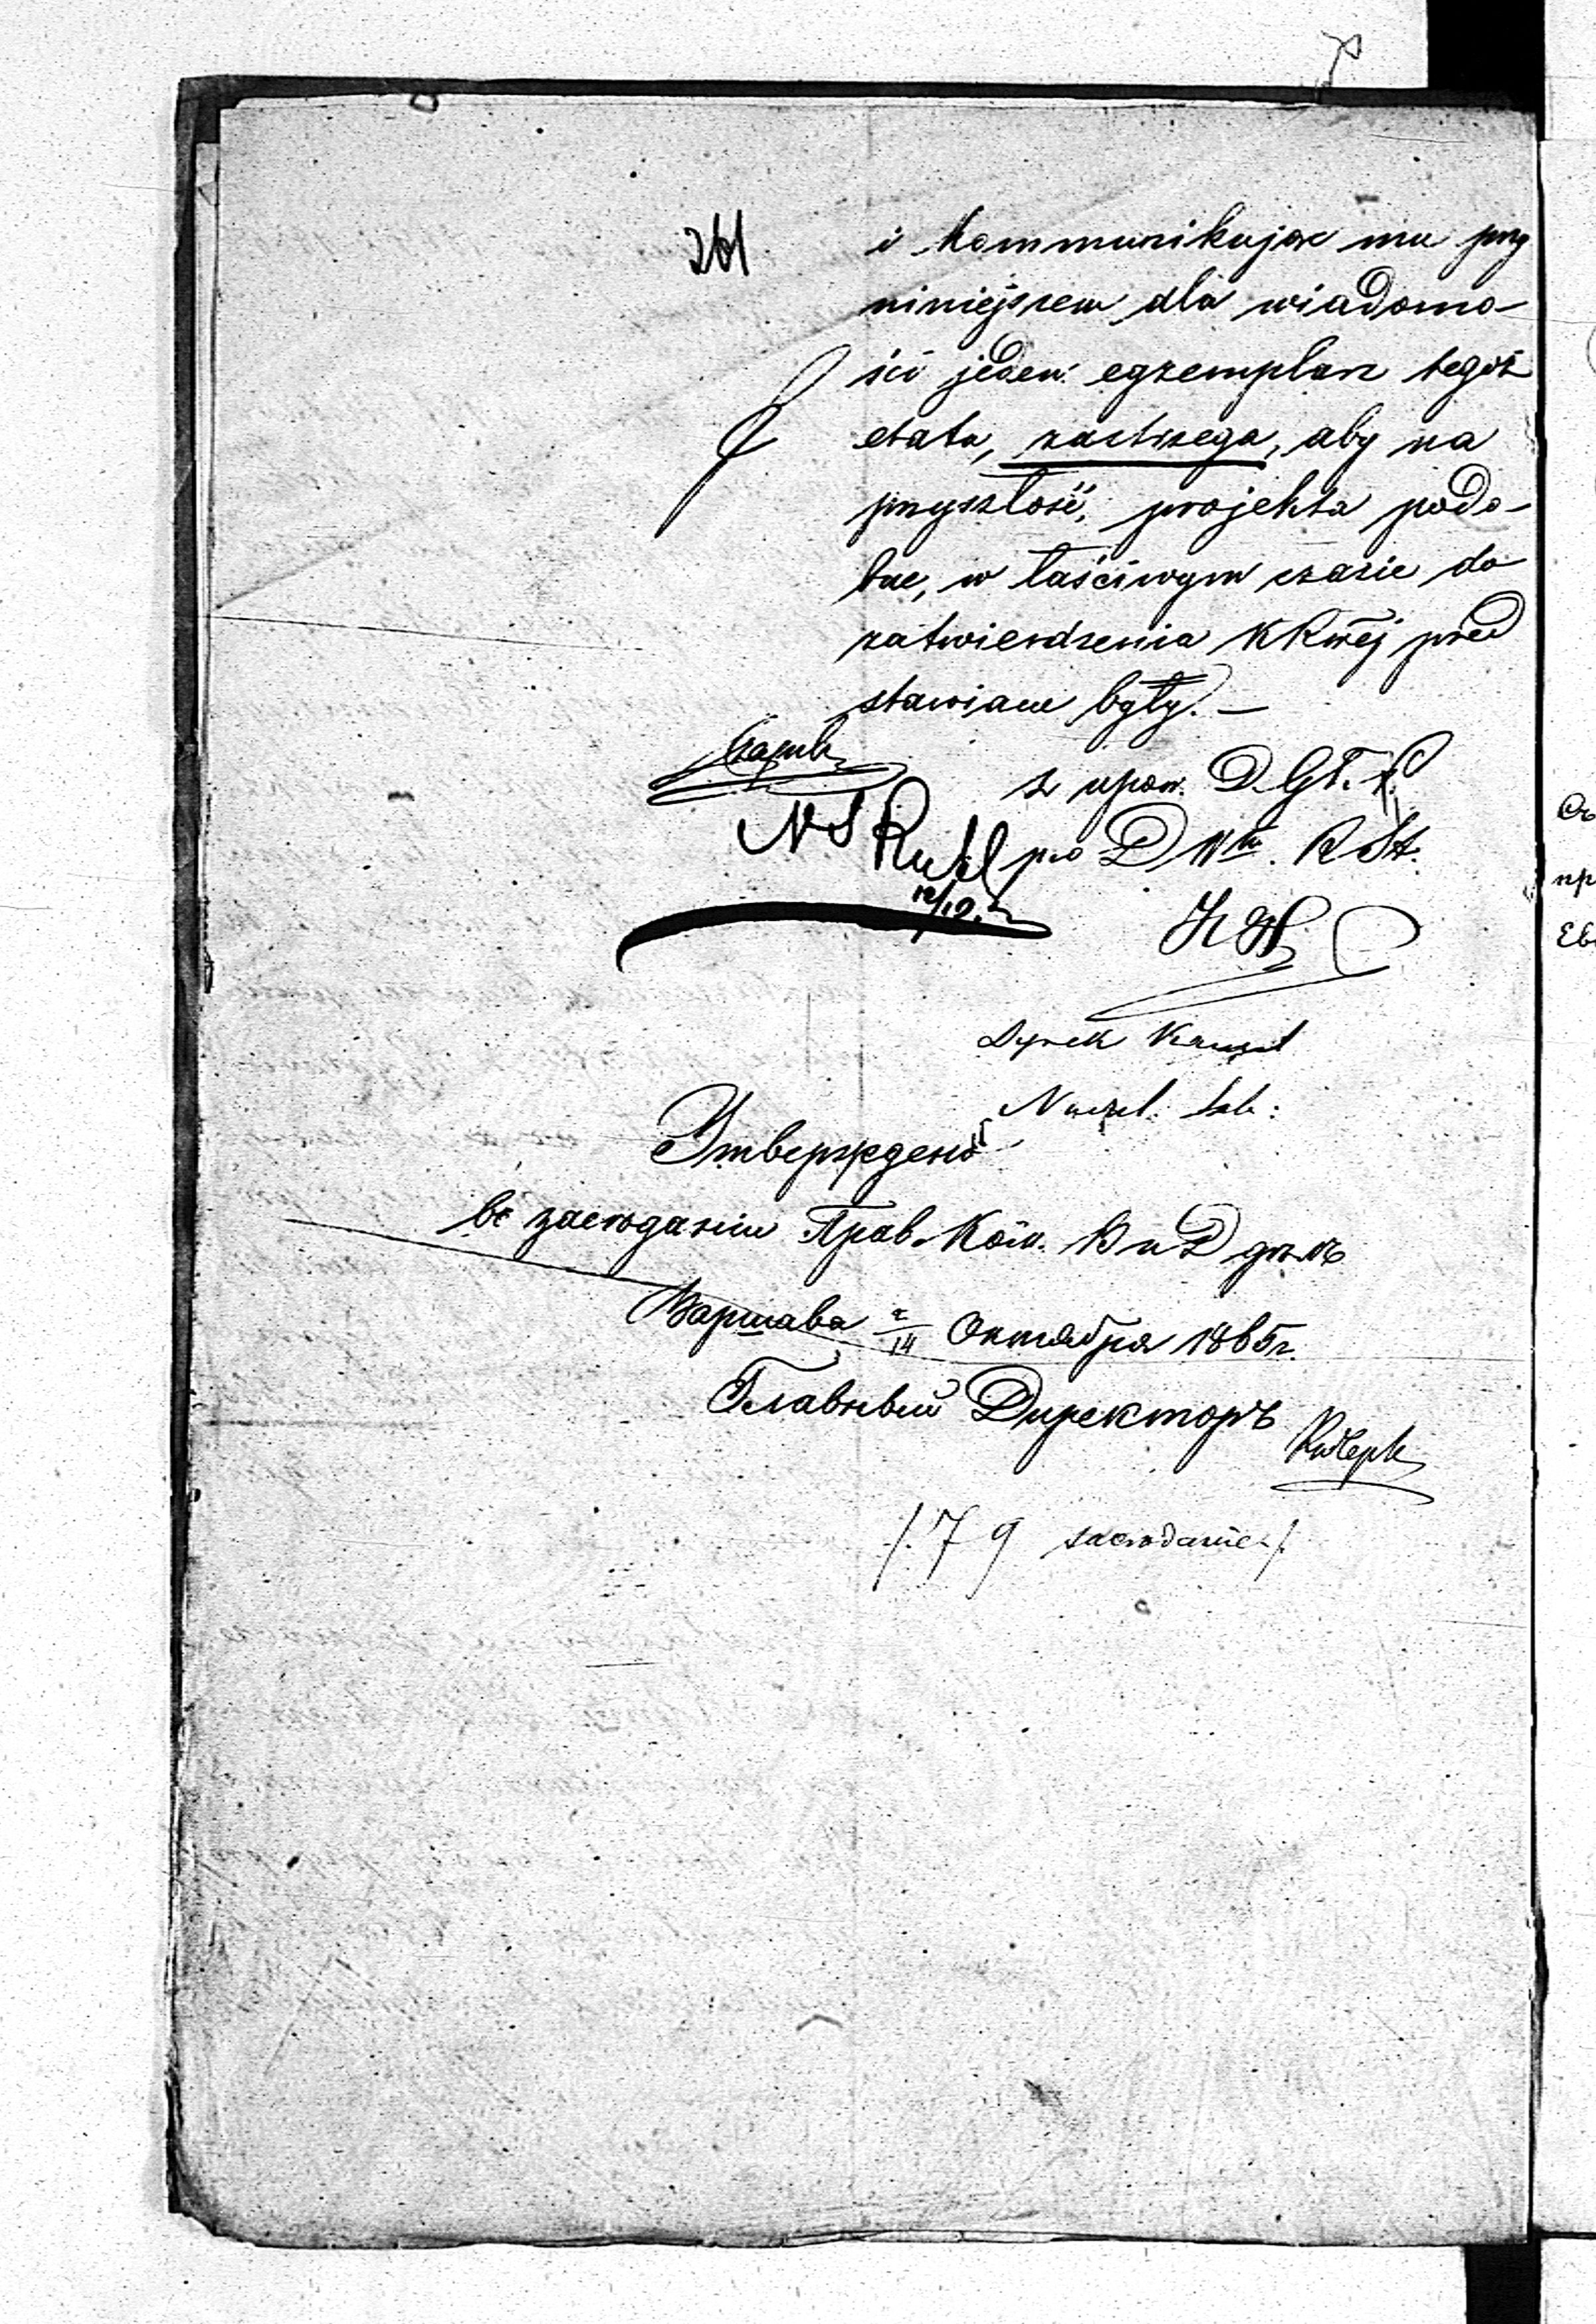 261
i kommunikując mu przy
niniejszem dla wiadomo-
ści jeden egzemplarz tegoż
etatu, zastrzega, aby na
przyszłość, projekta podo-
bne, w łaściwym czasie do
zatwierdzenia KRzej przed
stawiane były. —
z upow. D. Gł. P.
NS
p.o D Wu.
12/10
Dyrek Kancel
Naczel. Sek:
Утверждено
въ заседаніи Прав. Ком. В и Д делъ
Варшава 2/14 Октября 1865 г.
Главный Директоръ
/. 79 заседаніе ./